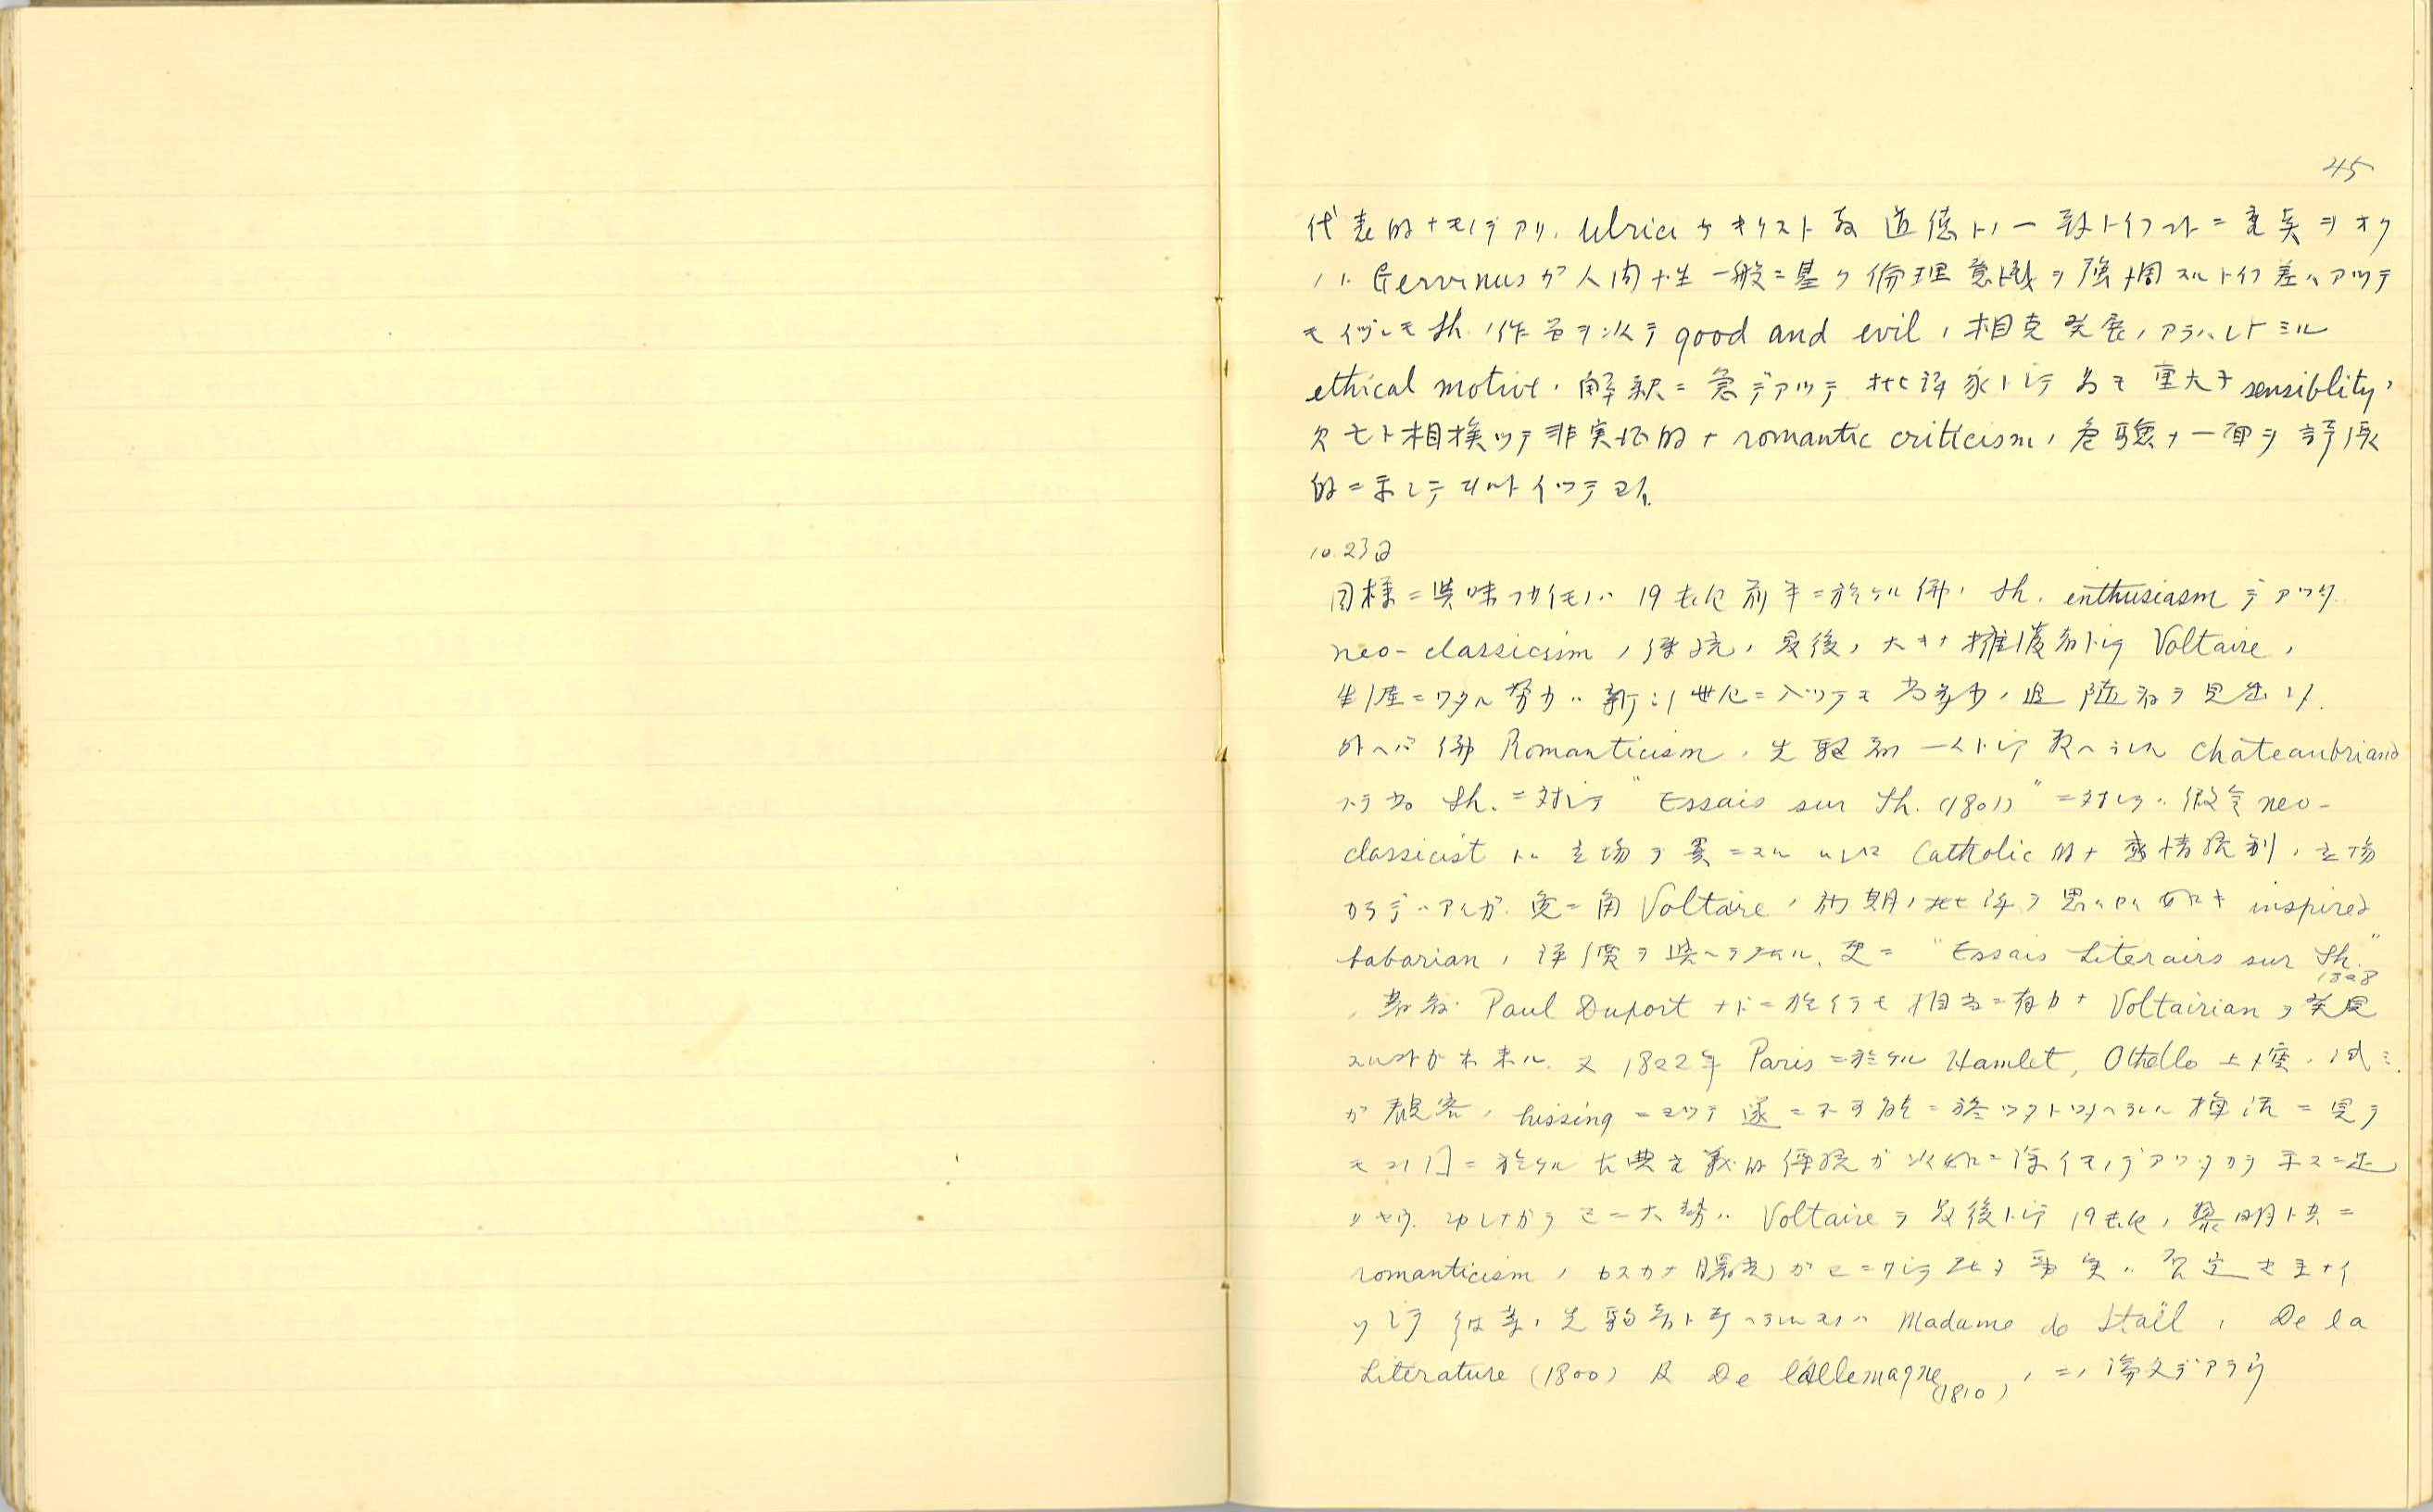 45
代表的ナモノデアリ. Ulrici ガキリスト教道徳トノ一致トイフコトニ重矣ヲオク
ノニ Gervinus ガ人間性一般ニ基ク倫理意識ヲ強調スルトイフ差ハアツテ
モイヅレモ Sh. ノ作品ヲ以テ good and evil ノ相克発展ノアラハレトミル
ethical motive ノ解釈ニ急デアツテ批評家トシテ最モ重大ナ sensiblity ノ
欠乏ト相挨ツテ非実証的ナ romantic criticism ノ危険ナ一面ヲ
的ニ示シテヰルトイツテヨイ.
10.23日
同様ニ興味フカイモノハ 19世紀前半ニ於ケル佛ノ Sh. enthusiasm デアツタ
neo-classicism ノ伝統ノ最後ノ大キナ擁護者トシテ Voltaire ノ
生涯ニワタル努力ハ新シイ世紀ニ入ツテモ尚多少ノ追随者ヲ見出シタ.
例ヘバ佛 Romanticism ノ先駆者ノ一人トシテ数ヘラレル Chateaubriand
スラ尚 Sh. ニ対シテ "Essais sur Sh. (1801)" ニ対シテハ仮令 neo-
classicist トハ立場ヲ異ニスル Catholic 的ナ感情 ノ立場
カラデハアルガ. 兎ニ角 Voltaire ノ初期ノ批評ヲ思ハセル如キ inspired
babarian ノ評價ヲ與ヘテヰル. 更ニ "Essais Literairs sur Sh."
1828
ノ著者 Paul Duport ナドニ於イテモ相当ニ有力ナ Voltairian ヲ発見
スルコトガ出来ル. 又 1822年 Paris ニ於ケル Hamlet, Othello 上演ノ試ミ
ガ観客ノ hissing ニヨツテ遂ニ不可能ニ終ツタト伝ヘラレル ニ見テ
モ 於ケル古典主義的伝統ガ以如ニ深イモノデアツタカヲ示スニ足
リヤウ. 切シナガラ 大勢ハ Voltaire ヲ最後トシテ 19世紀ノ黎明ト共ニ
romanticism ノカスカナ曙光ガ 事実ハ否定出来ナイ
ソシテ彼等ノ先駆者ト考ヘラレルモノハ Madame de Staël ノ De la
Literature (1800) 及 De l'Allemagne (1810) ノ二ノ論文デアラウ